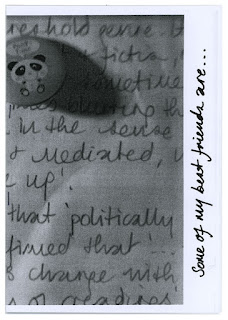 reshold genre. B
fictio,
sometime
blurring th
. In the sense
t Mediated, w
e up'.
that 'politically
firmed that '...
s change with
n of readings
Some of my best friends are...